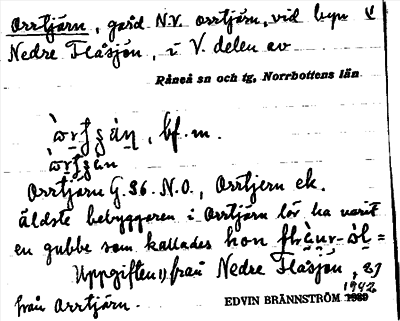 Orrtjärn, gård N.V. orrtjärn, vid byn V
Nedre Flåsjön, i V. delen av
Råneå sn och tg, Norrbottens län
bf. m.
Orrtjärn G.S6. N.O., Orrtjern ek.
äldste bebyggaren i Orrtjärn lör ha varit
en gubbe som kallades hon
Uppgiften 1) från Nedre Flåsjön, ej
från Orrtjärn.
1942
EDVIN BRÄNNSTRÖM 1939